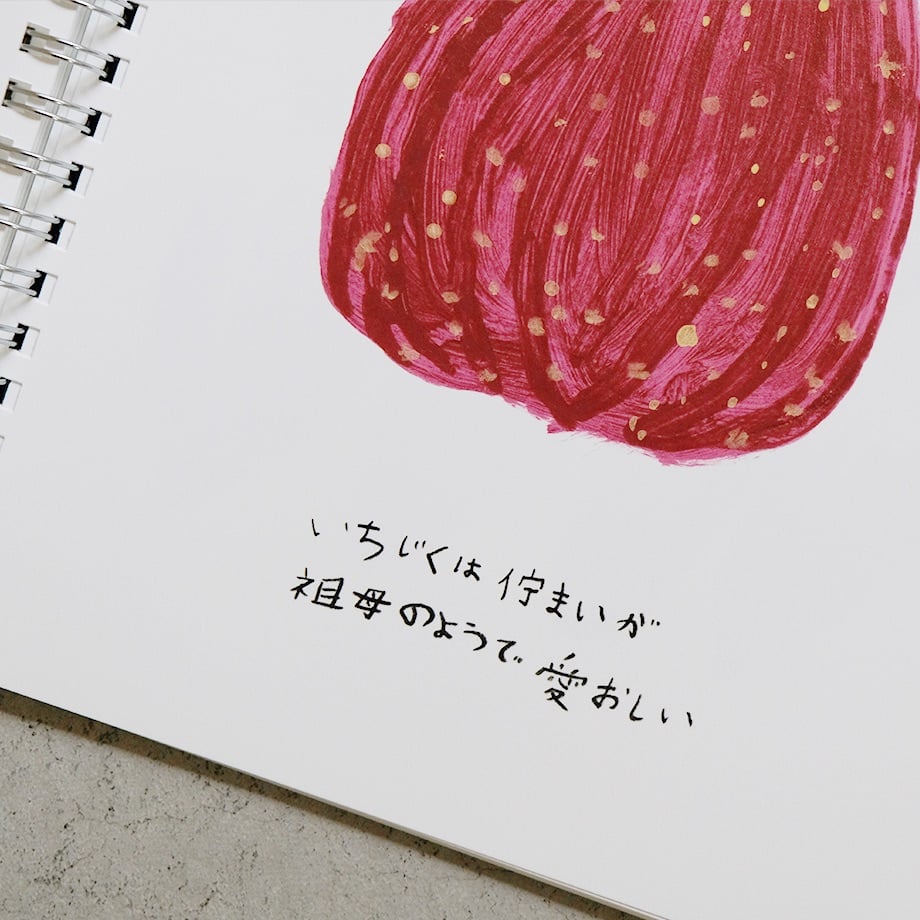 いちじくは 佇まいが
祖母のようで 愛おしい